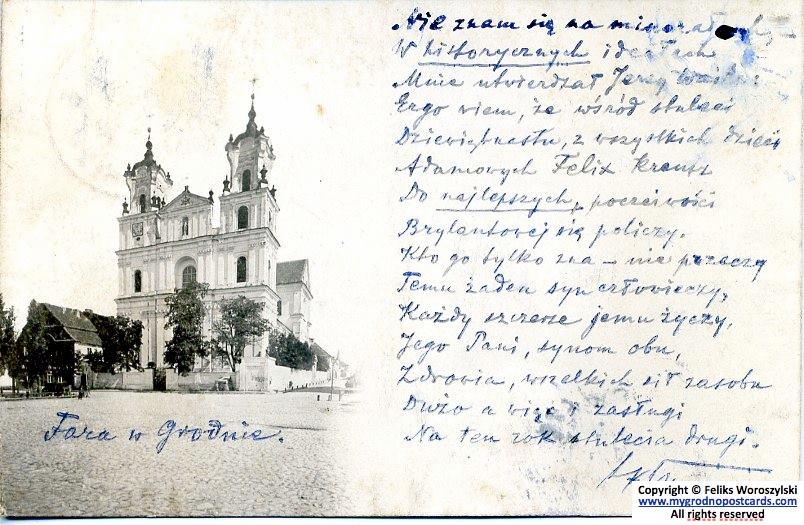 Nie znam się na
W historycznych ideałach
Mnie utwierdzał Jerzy
Ergo wiem, że wśród stuleci
Dziewiętnastu, z wszystkich dzieci
Adamowych Felix Kreusz
Do najlepszych, poczciwości
Brylantowej się policzy.
Kto go tylko zna – nie przeczy
Temu żaden syn człowieczy,
Każdy szczerze jemu życzy,
Jego Pani, synom obu,
Zdrowia, wszelkich sił zasobu
Dużo a więc i zasługi
Na ten rok stulecia drugi.
Fara w Grodnie.
Copyright © Feliks Woroszylski
www.mygrodnopostcards.com
All rights reserved